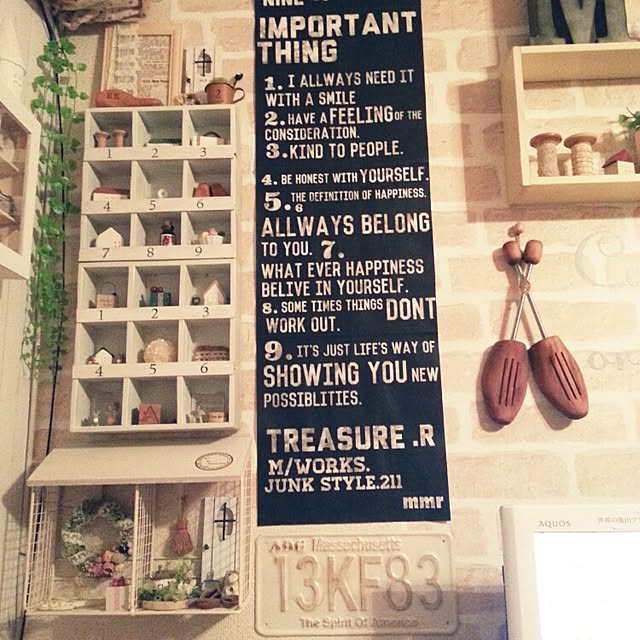 IMPORTANT
THING
1. I ALLWAYS NEED IT
WITH A SMILE
2. HAVE A FEELING OF THE
CONSIDERATION.
3. KIND TO PEOPLE.
4. BE HONEST WITH YOURSELF.
5. THE DEFINITION OF HAPPINESS.
6
ALLWAYS BELONG
TO YOU. 7.
WHAT EVER HAPPINESS
BELIVE IN YOURSELF.
8. SOME TIMES THINGS DONT
WORK OUT.
9. IT'S JUST LIFE'S WAY OF
SHOWING YOU NEW
POSSIBLITIES.
TREASURE .R
M/WORKS.
JUNK STYLE.211
mmr
Massachusetts
13KF83
The Spirit Of America
1 2 3
4 5 6
7 8 9
1 2 3
4 5 6
2
M
AQUOS